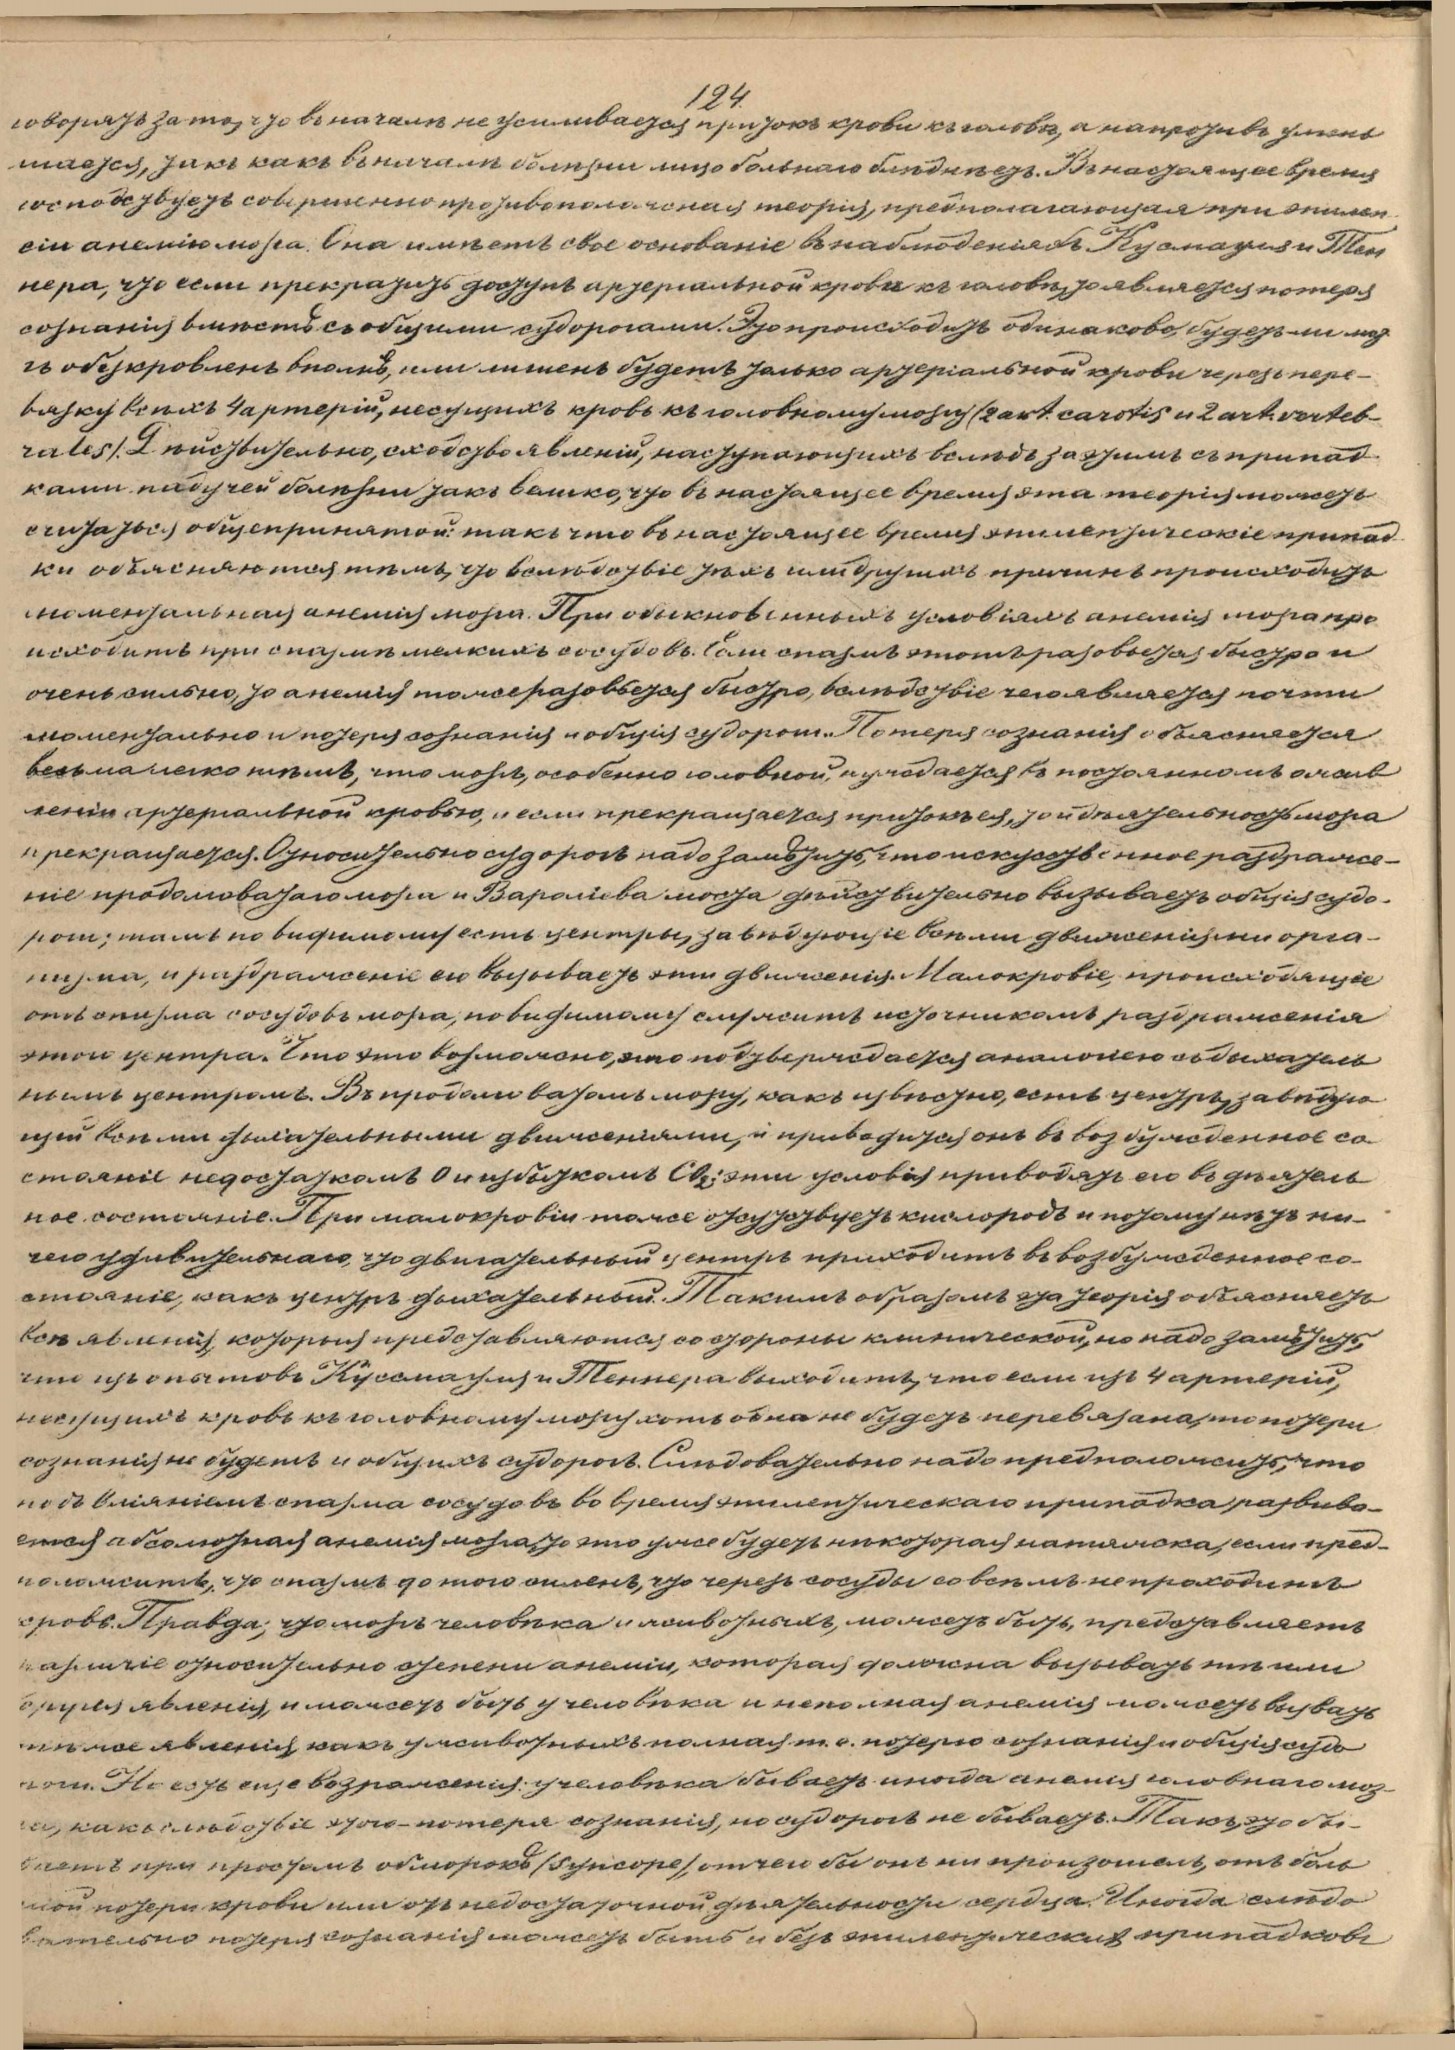 124.
говорятъ за то, что въ началѣ не усиливается притокъ крови къ головѣ, а напротивъ умень
шается, такъ какъ въ началѣ болѣзни лицо больнаго блѣднѣетъ. Въ настоящее время
господствуетъ совершенно противоположная теорія, предполагающая при эпилеп
сіи анемію мозга. Она имѣетъ свое основаніе въ наблюденіяхъ Кусмауля и Тен
нера, что если прекратить доступъ артеріальной крови къ головѣ, то является потеря
сознанія вмѣстѣ съ общими судорогами. Это происходитъ одинаково, будетъ-ли моз
гъ обезкровленъ вполнѣ, или лишенъ будетъ только артеріальной крови черезъ пере-
вязку всѣхъ 4 артерій, несущихъ кровь къ головному мозгу (2 art. carotis и 2 art. verteb-
rales). Дѣйствительно, сходство явленій, наступающихъ вслѣдъ за этимъ съ припад
ками падучей болѣзни такъ велико, что въ настоящее время эта теорія можетъ
считаться общепринятой: такъ что въ настоящее время эпилептическіе припад
ки объясняются тѣмъ, что вслѣдствіе тѣхъ или другихъ причинъ происходитъ
моментальная анемія мозга. При обыкновенныхъ условіяхъ анемія мозга про
исходитъ при спазмѣ мелкихъ сосудовъ. Если спазмъ этотъ разовьется быстро и
очень сильно, то анемія тоже разовьется быстро, вслѣдствіе чего является почти
моментально и потеря сознанія и общія судороги. Потеря сознанія объясняется
весьма легко тѣмъ, что мозгъ, особенно головной, нуждается въ постоянномъ ожив
леніи артеріальной кровью, и если прекращается притокъ ея, то и дѣятельность мозга
прекращается. Относительно судорогъ надо замѣтить, что искусственное раздраже-
ніе продолговатаго мозга и Вароліева моста дѣйствительно вызываетъ общія судо-
роги; тамъ по видимому есть центры, завѣдующіе всѣми движеніями орга-
низма, и раздраженіе его вызываетъ эти движенія. Малокровіе, происходящее
отъ спазма сосудовъ мозга, повидимому служитъ источникомъ раздраженія
этого центра. Что это возможно, это подтверждается аналогіею съ дыхатель
нымъ центромъ. Въ продолговатомъ мозгу, какъ извѣстно, есть центръ, завѣдую
щій всѣми дыхательными движеніями, и приводится онъ въ возбужденное со
стояніе недостаткомъ О и избыткомъ СО2; эти условія приводятъ его въ дѣятель
ное состояніе. При малокровіи тоже отсутствуетъ кислородъ и потому нѣтъ ни-
чего удивительнаго, что двигательный центръ приходитъ въ возбужденное со-
стояніе, какъ центръ дыхательный. Такимъ образомъ эта теорія объясняетъ
всѣ явленія, которыя представляются со стороны клинической, но надо замѣтить,
что изъ опытовъ Куссмауля и Теннера выходитъ, что если изъ 4 артерій,
несущихъ кровь къ головному мозгу хоть одна не будетъ перевязана, то потери
сознанія не будетъ и общихъ судорогъ. Слѣдовательно надо предположить, что
подъ вліяніемъ спазма сосудовъ во время эпилептическаго припадка развива-
ется абсолютная анемія мозга, то это уже будетъ нѣкоторая натяжка, если пред-
положить, что спазмъ до того силенъ, что черезъ сосуды совсѣмъ не проходитъ
кровь. Правда, что мозгъ человѣка и животныхъ, можетъ быть, представляетъ
различіе относительно степени анеміи, которая должна вызывать тѣ или
другія явленія, и можетъ быть у человѣка и неполная анемія можетъ вызвать
тѣ же явленія, какъ у животныхъ полная т.е. потерю сознанія и общія судо
роги. Но есть еще возраженія: у человѣка бываетъ иногда анемія головнаго моз-
га, какъ слѣдствіе этого - потеря сознанія, но судорогъ не бываетъ. Такъ, это бы-
ваетъ при простомъ обморокѣ (Syncope), отчего бы онъ ни произошелъ, отъ боль
шой потери крови или отъ недостаточной дѣятельности сердца. Иногда слѣдо
вательно потеря сознанія можетъ быть и безъ эпилептическихъ припадковъ